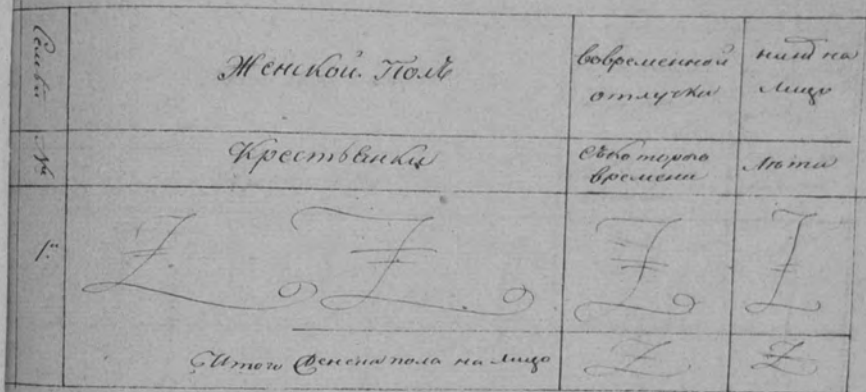 Семьи
Женской Полъ
вовременной
отлучки
нынѣ на
лицо
№
Крестьянки
Съкоторого
времени
Лѣта
1.
Итого женска пола на лицо